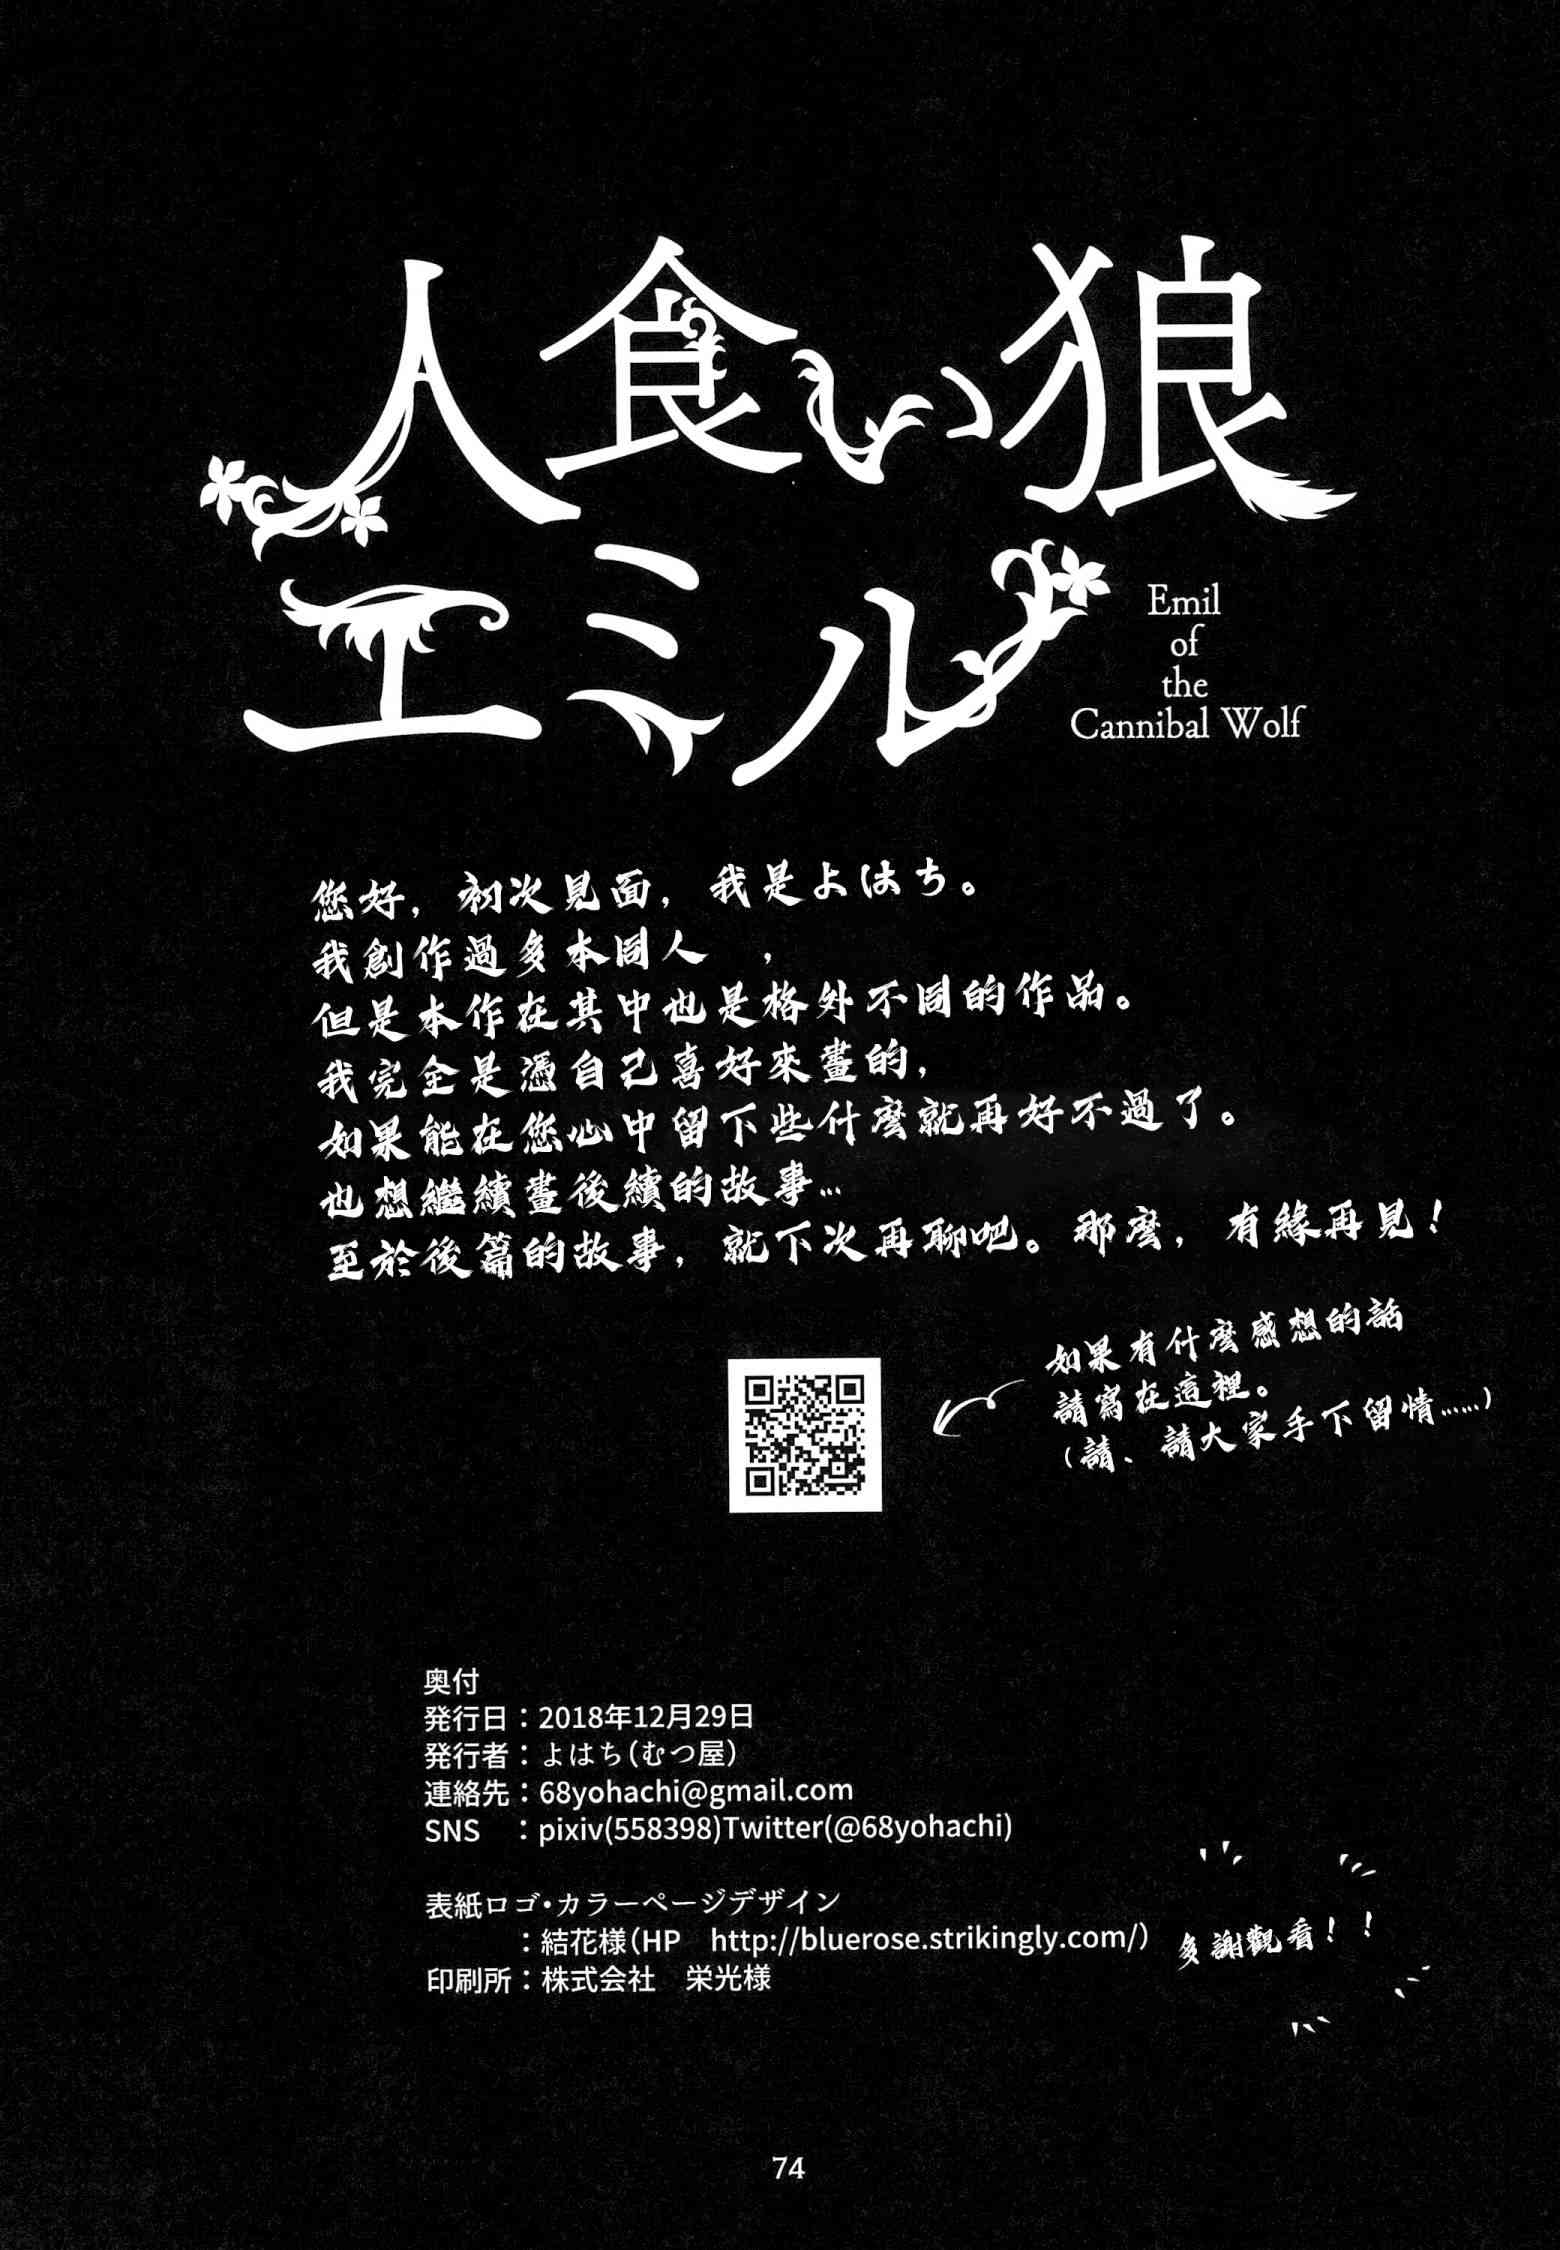 人食い狼
エミル
Emil
of
the
Cannibal Wolf
您好，初次見面，我是よはち。
我創作過多本同人　，
但是本作在其中也是格外不同的作品。
我完全是憑自己喜好來畫的，
如果能在您心中留下些什麼就再好不過了。
也想繼續畫後續的故事…
至於後篇的故事，就下次再聊吧。那麼，有緣再見！
如果有什麼感想的話
請寫在這裡。
（請、請大家手下留情……）
奥付
発行日：2018年12月29日
発行者：よはち（むつ屋）
連絡先：68yohachi@gmail.com
SNS　：pixiv(558398)Twitter(@68yohachi)
表紙ロゴ・カラーページデザイン
：結花様（HP　http://bluerose.strikingly.com/）
印刷所：株式会社　栄光様
多謝觀看！！
74